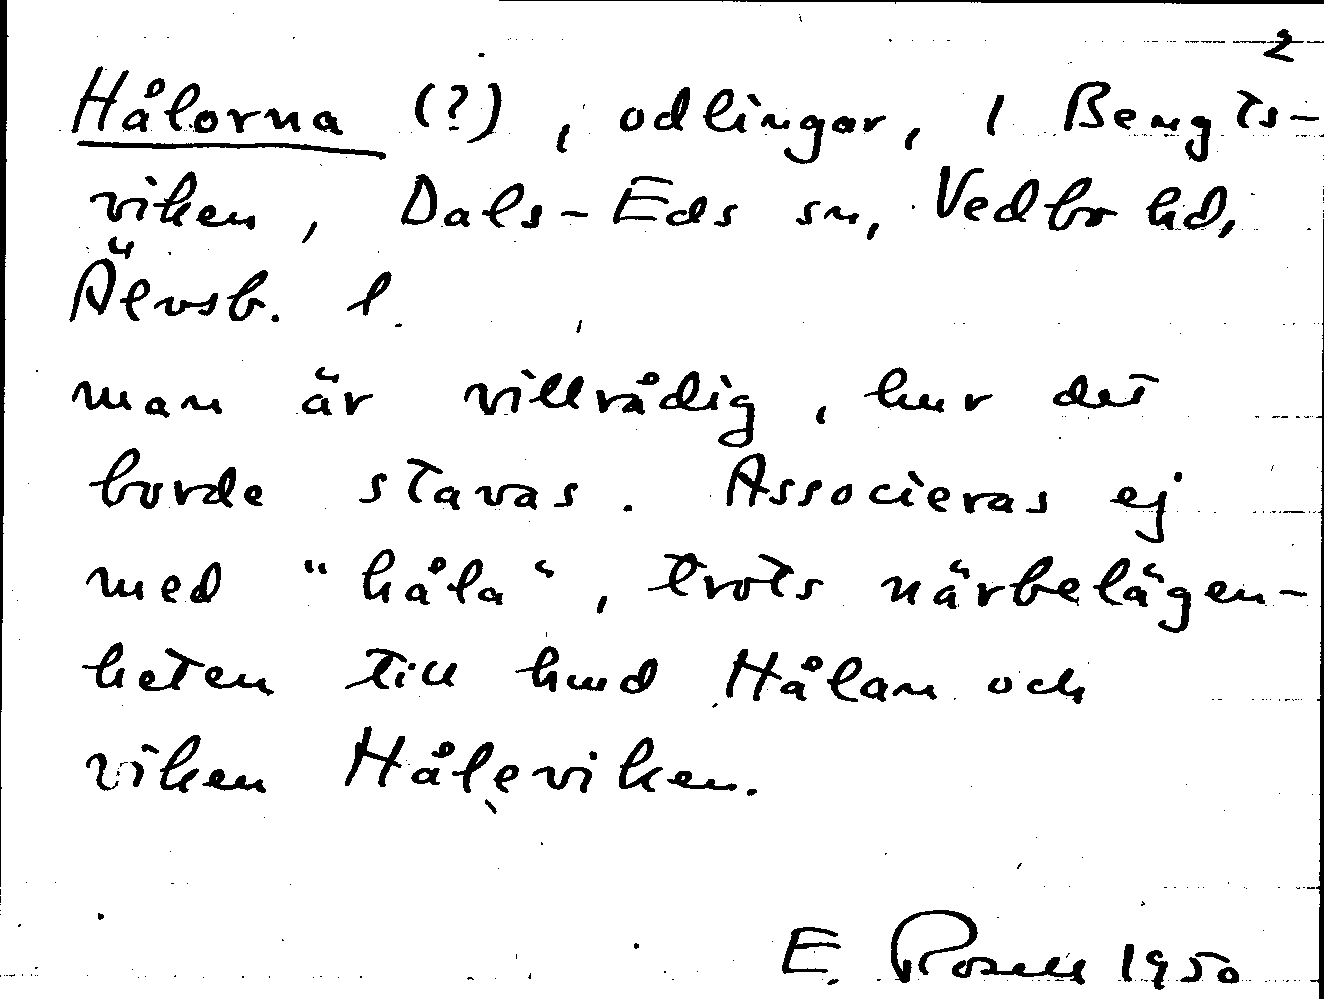 2
Hålorna (?), odlingar, 1 Bengts-
viken, Dals-Eds sn, Vedbo hd,
Älvsb. l.
man är villrådig, hur det
borde stavas. Associeras ej
med "håla", trots närbelägen-
heten till hmd Hålan och
viken Håleviken.
E. Rosell 1950